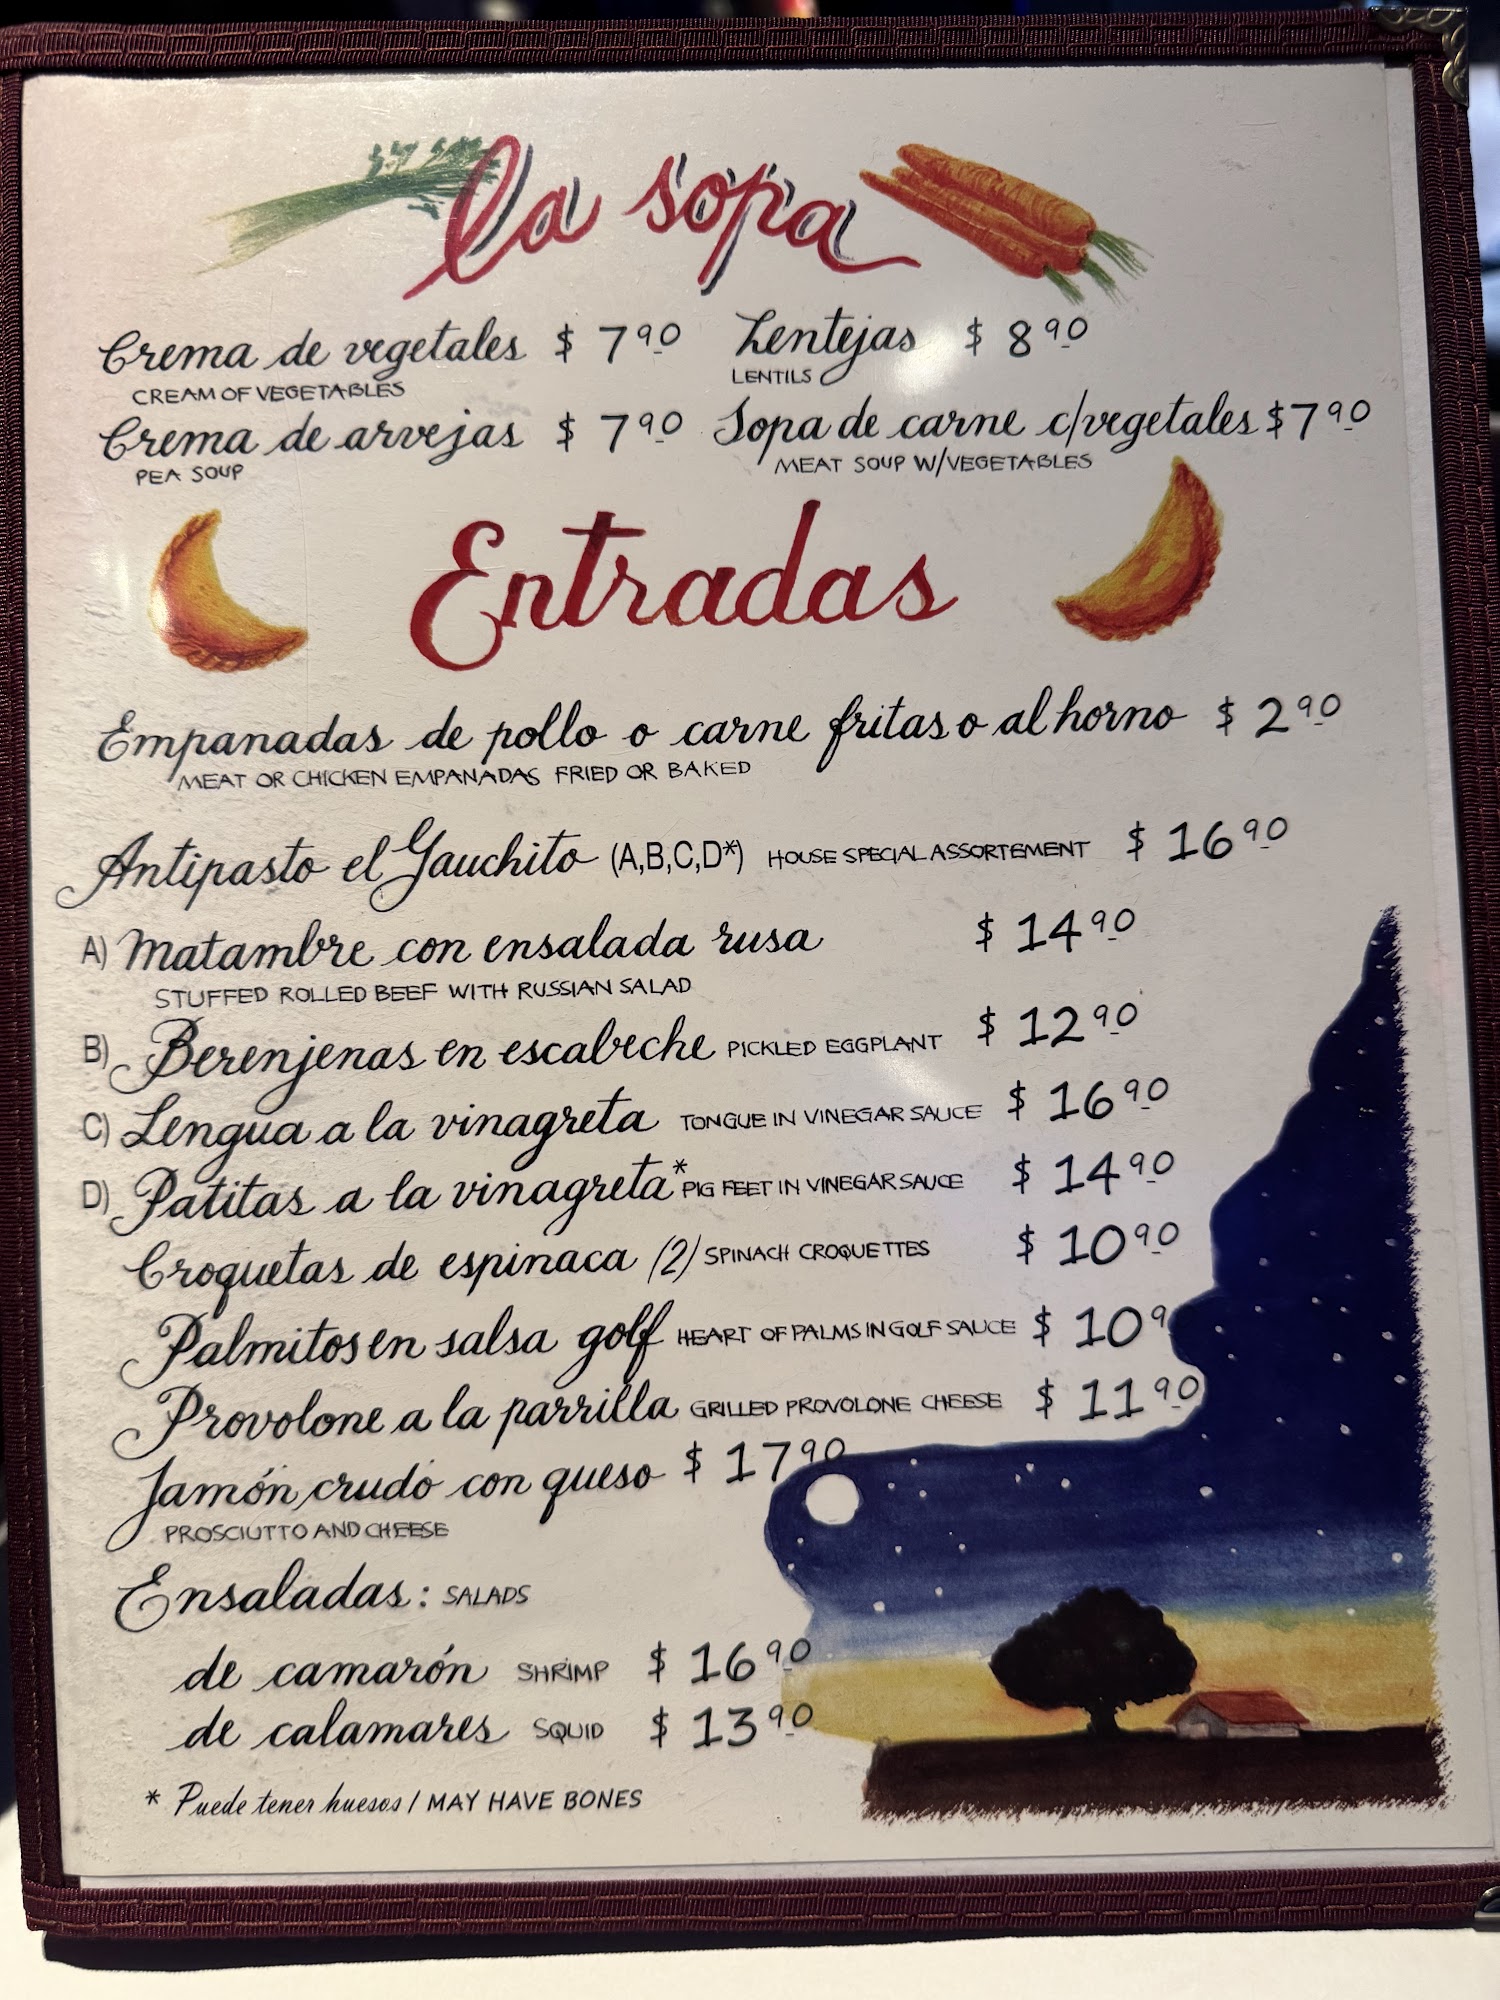 la sopa
Crema de vegetales $ 7.90 Lentejas $ 8.90
CREAM OF VEGETABLES LENTILS
Crema de arvejas $ 7.90 Sopa de carne c/vegetales $ 7.90
PEA SOUP MEAT SOUP W/VEGETABLES
Entradas
Empanadas de pollo o carne fritas o al horno $ 2.90
MEAT OR CHICKEN EMPANADAS FRIED OR BAKED
Antipasto el Gauchito (A,B,C,D*) HOUSE SPECIAL ASSORTEMENT $ 16.90
A) Matambre con ensalada rusa $ 14.90
STUFFED ROLLED BEEF WITH RUSSIAN SALAD
B) Berenjenas en escabeche PICKLED EGGPLANT $ 12.90
C) Lengua a la vinagreta TONGUE IN VINEGAR SAUCE $ 16.90
D) Patitas a la vinagreta* PIG FEET IN VINEGAR SAUCE $ 14.90
Croquetas de espinaca (2) SPINACH CROQUETTES $ 10.90
Palmitos en salsa golf HEART OF PALMS IN GOLF SAUCE $ 10.9
Provolone a la parrilla GRILLED PROVOLONE CHEESE $ 11.90
Jamón crudo con queso $ 17.90
PROSCIUTTO AND CHEESE
Ensaladas: SALADS
de camarón SHRIMP $ 16.90
de calamares SQUID $ 13.90
* Puede tener huesos / MAY HAVE BONES